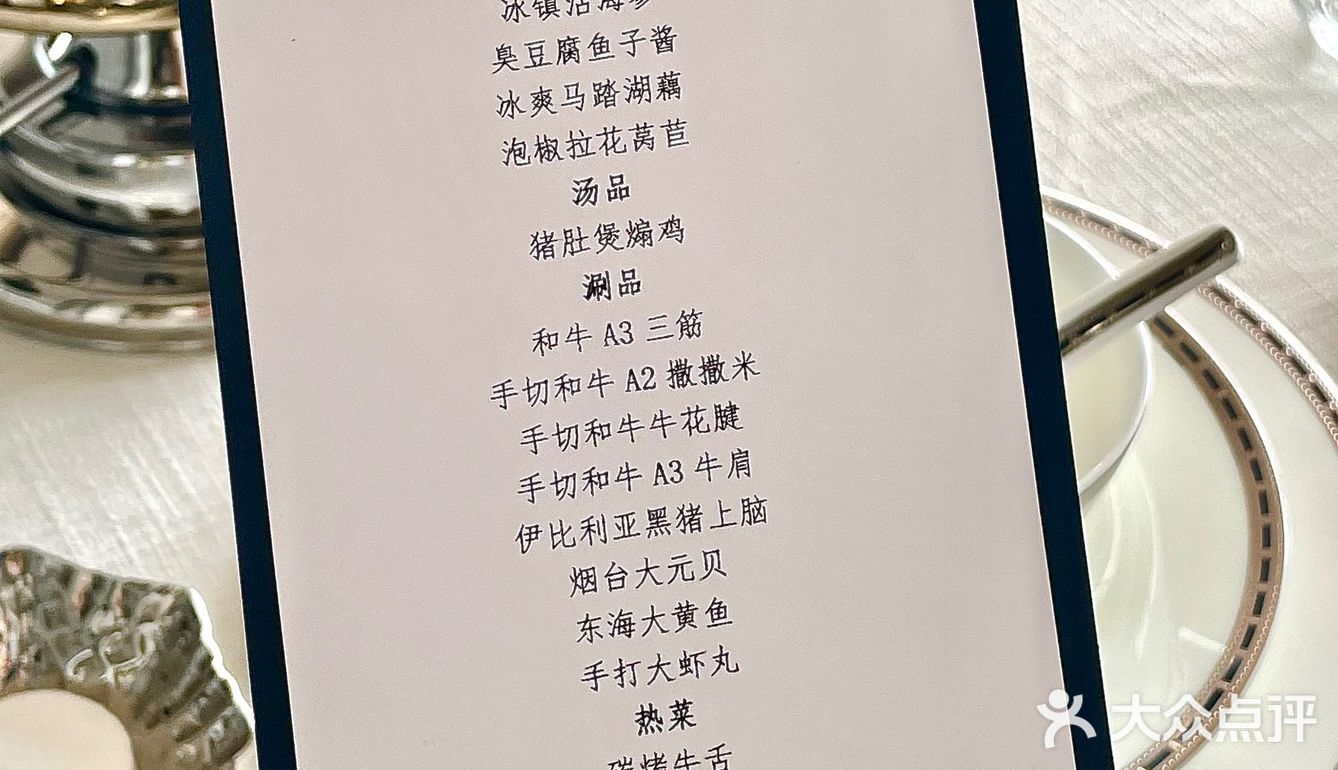 冰镇活海参
臭豆腐鱼子酱
冰爽马踏湖藕
泡椒拉花莴苣
汤品
猪肚煲煽鸡
涮品
和牛 A3 三筋
手切和牛 A2 撒撒米
手切和牛牛花腱
手切和牛 A3 牛肩
伊比利亚黑猪上脑
烟台大元贝
东海大黄鱼
手打大虾丸
热菜
碳烤牛舌
大众点评